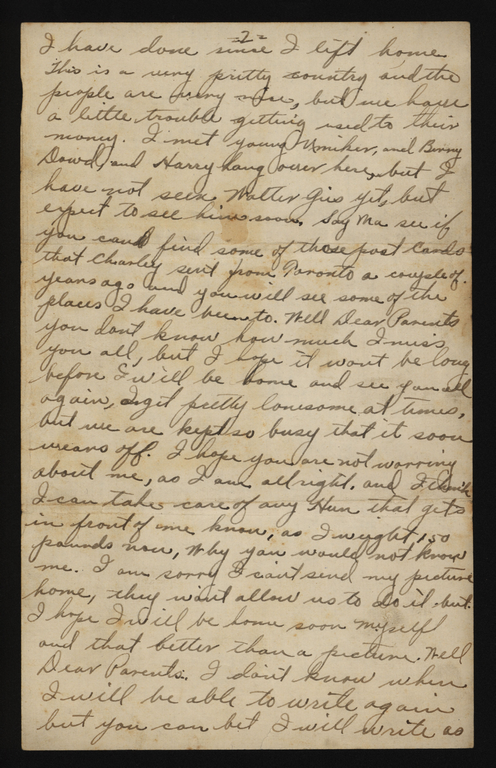 -2-
I have done since I lift home
This is a very pretty country and the
people are very nise, but we have
a little trouble getting used to their
money. I met young Umiker, and Benny
Dowd, and Harry Lang over here, but I
have not seen Walter Gus yet, but
expect to see him soon, Say Ma see if
you can find some of those post cards
that Charley sent from Toronto a couple of
years ago and you will see some of the
places I have been to. Well Dear Parents
you dont know how much I miss
you all, but I hope it wont be long
before I will be home and see you all
again, I git pretty lonesome at times,
but we are kept so busy that it soon
wears off. I hope you are not worring
about me, as I am all right. and I think
I can take care of any Hun that gets
in front of me know, as I wieght 150
pounds now, Why you would not know
me. I am sorry I cant send my picture
home, they wint allow us to do it, but
I hope I will be home soon myself
and that better than a picture. Well
Dear Parents. I don't know when
I will be able to write again
but you can bet I will write as